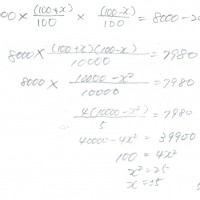 000 × (100+x)/100 × (100-x)/100 = 8000-20
8000 × (100+x)(100-x)/10000 = 7980
8000 × 10000-x²/10000 = 7980
4(10000-x²)/5 = 7980
40000-4x² = 39900
100 = 4x²
x² = 25
x = ±5